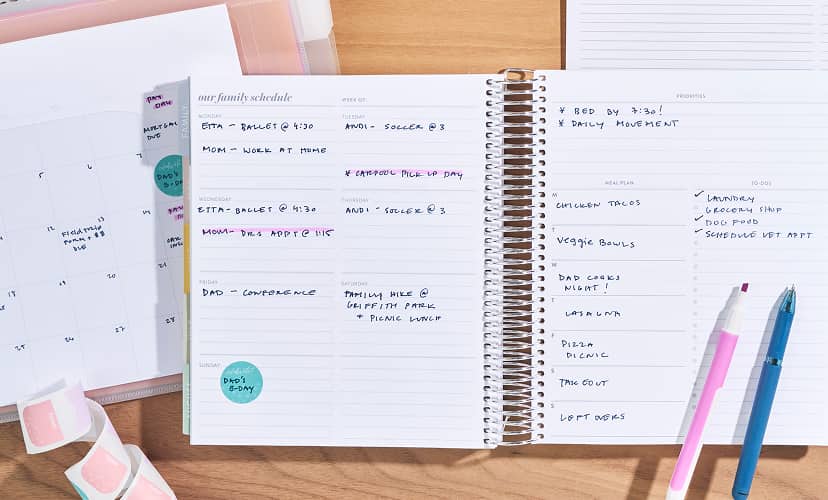 5
6
7
12
13
14
FIELD TRIP
FORM + $$
DUE
19
20
21
26
27
28
PAY
DAY
DUE
FAMILY
DAD'S
B-DAY
our family schedule
WEEK OF:
MONDAY
ETTA - BALLET @ 4:30
MOM - WORK AT HOME
TUESDAY
ANDI - SOCCER @ 3
* CARPOOL PICK UP DAY
WEDNESDAY
ETTA - BALLET @ 4:30
MOM - DRS APPT @ 1:15
THURSDAY
ANDI - SOCCER @ 3
FRIDAY
DAD - CONFERENCE
SATURDAY
FAMILY HIKE @
GRIFFITH PARK
+ PICNIC LUNCH
SUNDAY
DAD'S
B-DAY
PRIORITIES
* BED BY 7:30!
* DAILY MOVEMENT
MEAL PLAN
M
CHICKEN TACOS
T
VEGGIE BOWLS
W
DAD COOKS
NIGHT!
T
LASAGNA
F
PIZZA
PICNIC
S
TAKEOUT
S
LEFTOVERS
TO-DOS
✓ LAUNDRY
GROCERY SHOP
✓ DOG FOOD
✓ SCHEDULE VET APPT